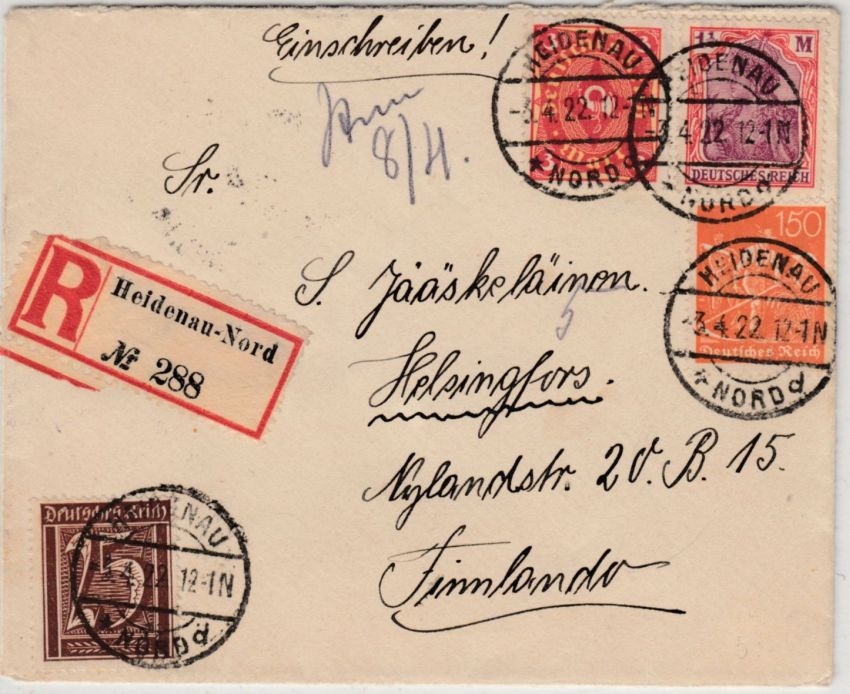 Einschreiben!
HEIDENAU
-3.4.22. 12-1N
* NORD d
3
HEIDENAU
-3.4.22 12-1N
* NORD d
1¼ M
DEUTSCHES REICH
8/4.
Sr.
R
Heidenau-Nord
№ 288
150
Deutsches Reich
HEIDENAU
-3.4.22. 12-1N
* NORD d
S. Jääskeläinen.
5
Helsingfors.
Nylandstr. 20. B. 15.
Finnlando
Deutsches Reich
75
HEIDENAU
-3.4.22. 12-1N
* NORD d